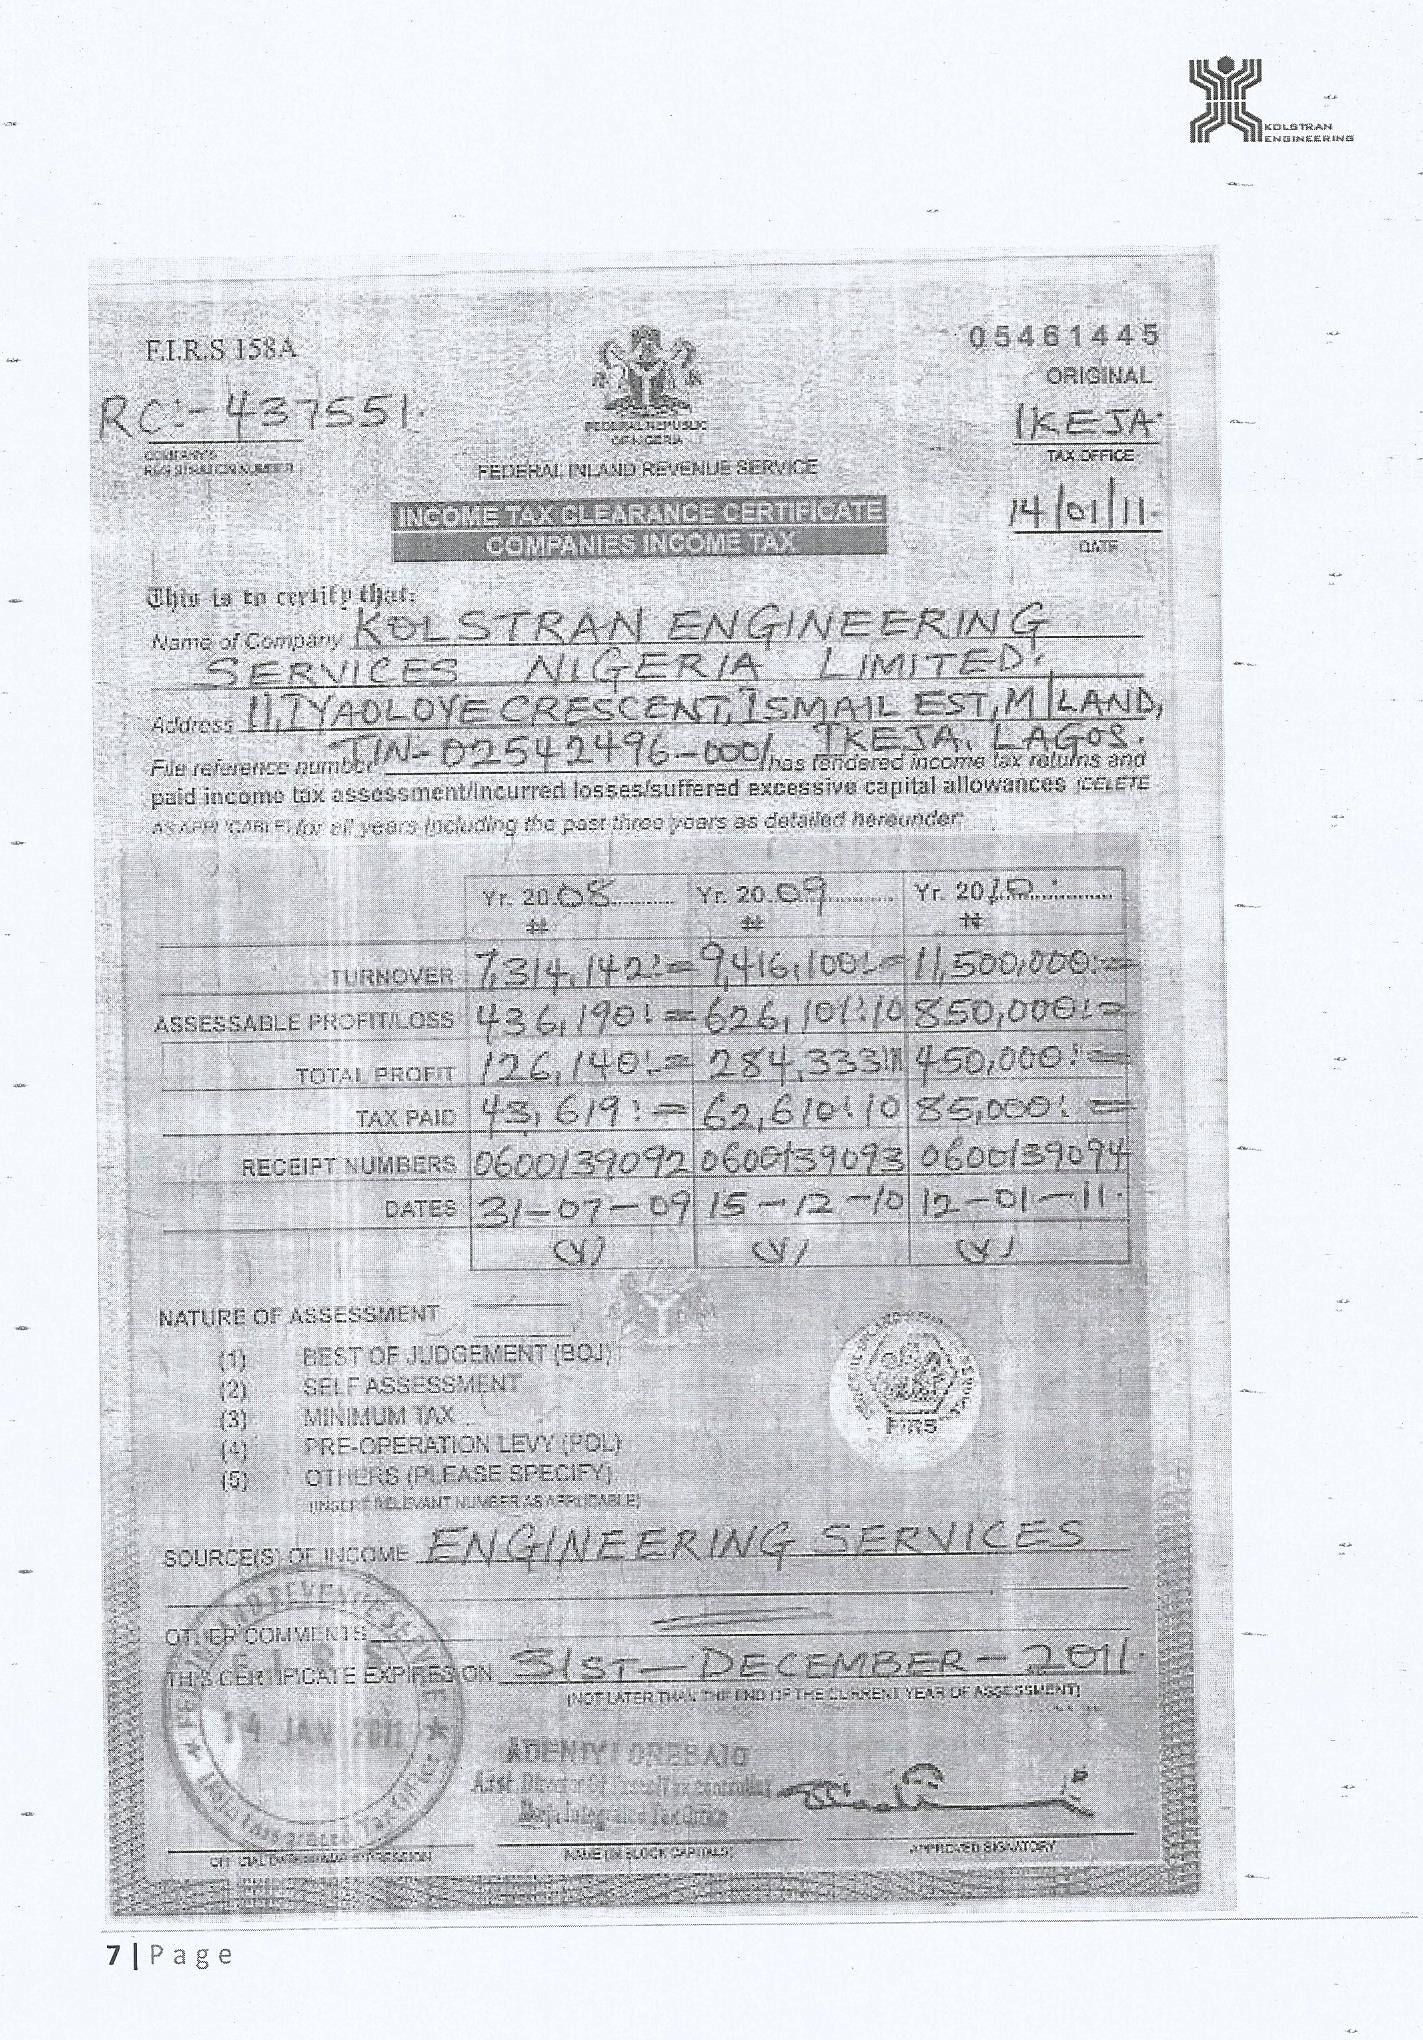 KOLSTRAN
ENGINEERING
F.I.R.S 158A
05461445
ORIGINAL
RC:- 437551.
COMPANY'S
REGISTRATION NUMBER
FEDERAL REPUBLIC
OF NIGERIA
IKEJA.
TAX OFFICE
FEDERAL INLAND REVENUE SERVICE
INCOME TAX CLEARANCE CERTIFICATE
COMPANIES INCOME TAX
14/01/11.
DATE
This is to certify that:
Name of Company KOLSTRAN ENGINEERING
SERVICES NIGERIA LIMITED.
Address 11, IYAOLOYE CRESCENT, ISMAIL EST, M/LAND,
IKEJA. LAGOS.
File reference number TIN-02542496-0001 has rendered income tax returns and
paid income tax assessment/incurred losses/suffered excessive capital allowances (DELETE
AS APPLICABLE) for all years including the past three years as detailed hereunder:
Yr. 2008 Yr. 2009 Yr. 2010
N N N
TURNOVER 7,314,142:= 9,416,100:= 11,500,000:=
ASSESSABLE PROFIT/LOSS 436,190:= 626,101:10 850,000:=
TOTAL PROFIT 126,140:= 284,333 450,000:=
TAX PAID 43,619:= 62,610:10 85,000:=
RECEIPT NUMBERS 0600139092 0600139093 0600139094
DATES 31-07-09 15-12-10 12-01-11.
NATURE OF ASSESSMENT
(1) BEST OF JUDGEMENT (BOJ)
(2) SELF ASSESSMENT
(3) MINIMUM TAX
(4) PRE-OPERATION LEVY (POL)
(5) OTHERS (PLEASE SPECIFY)
(INSERT RELEVANT NUMBER AS APPLICABLE)
FIRS
SOURCE(S) OF INCOME ENGINEERING SERVICES
OTHER COMMENTS
THIS CERTIFICATE EXPIRES ON 31ST - DECEMBER - 2011.
(NOT LATER THAN THE END OF THE CURRENT YEAR OF ASSESSMENT)
14 JAN 2011
ADENIYI OREBAJO
Ikeja Integrated Tax Office
NAME (IN BLOCK CAPITALS)
APPROVED SIGNATORY
7 | Page